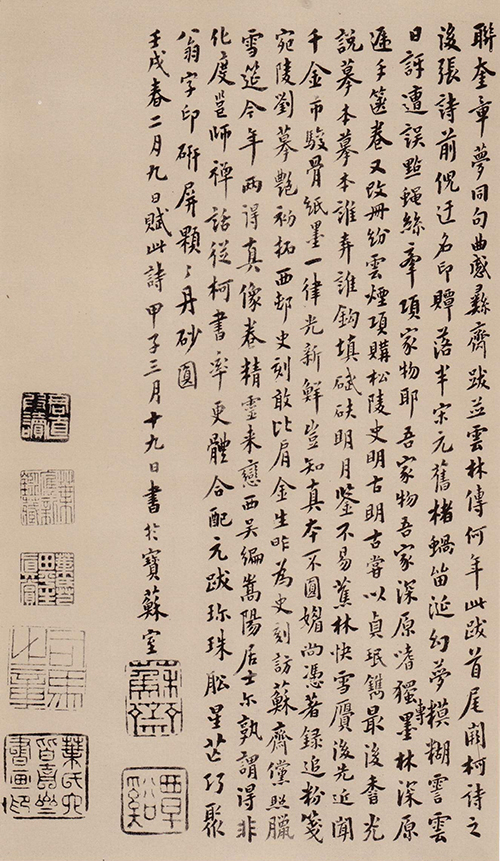 聯奎章夢同句曲感彝齊跋並雲林傳何年此跋首尾闕柯詩之
後張詩前倪迂名印驔落半宋元舊楮蝸笛涎幻夢模糊雲雲
日訝遭誤點蠅絲牽項家物耶吾家物吾家深原嗜獨墨林深原
遞手篋卷又改冊紛雲煙項購松陵史明古明古嘗以貞珉鐫最後轉眷光
說摹本摹本誰弆誰鉤填碔砆明月鑒不易蕉林快雪贗後先近聞
千金市駿骨紙墨一律光新鮮豈知真本不圓媚尚憑著錄追粉箋
宛陵劉摹艷初拓西邨史刻敢比肩金生昨為史刻訪蘇齊儻照臘
雪筵今年兩得真像卷精靈来戀西吳編嵩陽居士尓孰謂得非
化度邕師禪話從柯書率更體合配元跋琭珠聯星芒巧聚
翁字印研屏顆顆丹砂圓
壬戌春二月九日賦此詩甲子三月十九日書於寶蘇室